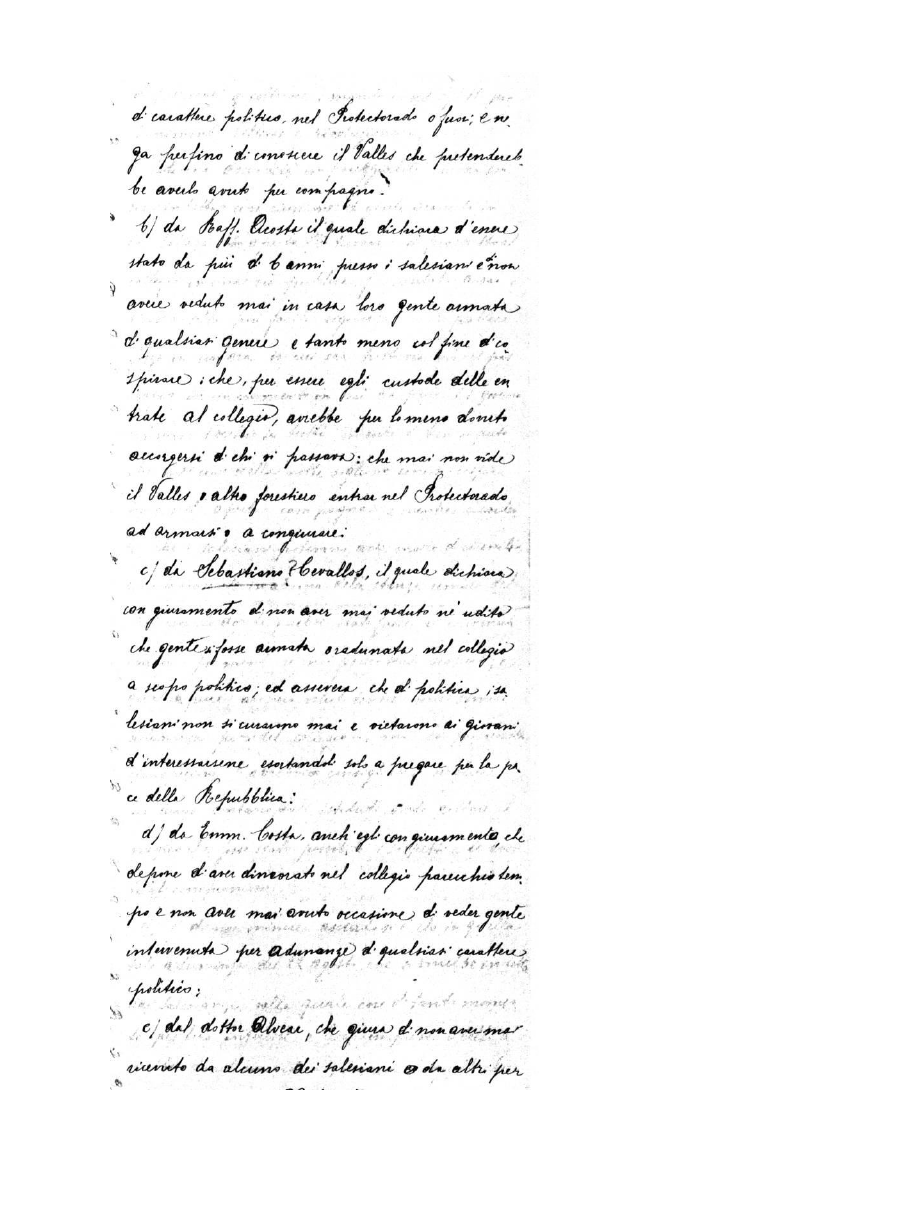 di carattere politico, nel Protectorado o fuori; e ne
ga perfino di conoscere il Valles che pretendereb-
be averlo avuto per compagno.
b) da Raff. Acosta il quale dichiara d'essere
stato da più di 6 anni presso i salesiani e non
avere veduto mai in casa loro gente armata
di qualsiasi genere e tanto meno col fine di co
spirare; che, per essere egli custode delle en
trate al collegio, avrebbe per lo meno dovuto
accorgersi di chi vi passava: che mai non vide
il Valles o altro forestiero entrar nel Protectorado
ad armarsi o a congiurare:
c) da Sebastiano Zevallos, il quale dichiara
con giuramento di non aver mai veduto nè udito
che gente fosse armata o radunata nel collegio
a scopo politico; ed assevera che di politica i sa
lesiani non si curarono mai e vietarono ai giovani
d'interessarsene esortandoli solo a pregare per la pa
ce della Repubblica:
d) da Emm. Costa, anch'egli con giuramento, che
depone d'aver dimorato nel collegio parecchio tem
po e non aver mai avuto occasione di veder gente
intervenuta per adunanze di qualsiasi carattere
politico;
e) dal dottor Alvear, che giura di non aver mai
ricevuto da alcuno dei salesiani o da altri per